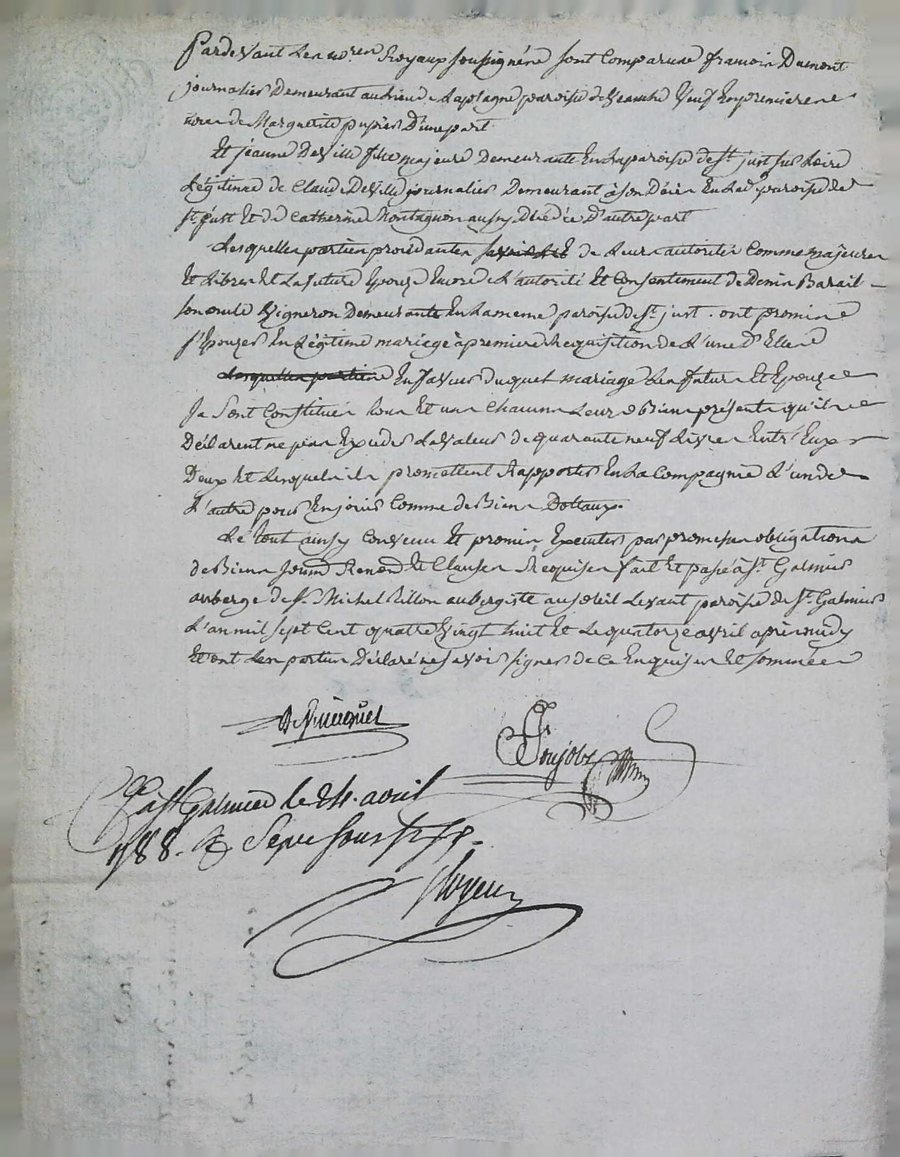 Pardevant Les no.res Royaux soussignés sont Comparus francois Dumont
journalier Demeurant au lieu de Laplagne paroisse de Veauche Veuf En premieres
noces de Marguerite pupier D'une part
Et jeanne Deville fille majeure Demeurante En La paroisse de st. just sur Loire
Légitime de Claude Deville journalier Demeurant à son Décès En Lad. paroisse de
st. just Et de Catherine Montagnon aussy Décédée D'autre part
Lesquelles parties procédantes de Leurs autorités Comme majeures
Et Libres Et La future Epouse Encore de L'autorité Et Consentement de Denis Barail
son oncle Vigneron Demeurante En La meme paroisse de st. just. ont promis
s'Epouser En Légitime mariage à premiere Requisition de L'une d'Elles
Lesquelles parties En faveur duquel mariage Les futurs Et Epouse
Se sont Constitués tous Et uns Chacuns Leurs Biens présents qu'ils
Déclarent ne pas Exceder La valeur de quarante neuf Livres Entr'Eux
Deux Et Lesquels ils promettent Rapporter En La Compagnie L'un de
L'autre pour En jouir Comme de Biens Dottaux.
Le tout ainsy Convenu Et promis Executer par promesses obligations
de Biens Soumis Renons Et Clauses Requises fait Et passé à st. Galmier
auberge de sr. Michel Rillon aubergiste au soleil Levant paroisse de st. Galmier
L'an mil sept Cent quatre Vingt huit Et Le quatorze avril après midy
Et ont Les parties Déclaré ne savoir signer de ce Enquises Et sommées
Poujolz
a st Galmier le 24. avril
1788. Sept sous